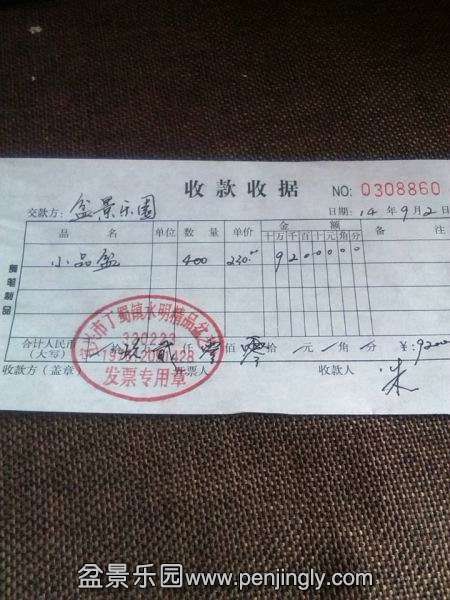 收款收据 NO: 0308860
交款方: 盆景乐园 日期: 14年9月2日
品名 单位 数量 单价 金额 备注
十万千百十元角分
小品盆 400 230.00 9200000
合计人民币(大写) 玖 万 贰 仟 零 佰 零 拾 元 角 分 ¥: 9200
收款方(盖章) 开票人 收款人 朱
丁蜀镇水明精品盆
320223
发票专用章
盆景乐园www.penjingly.com